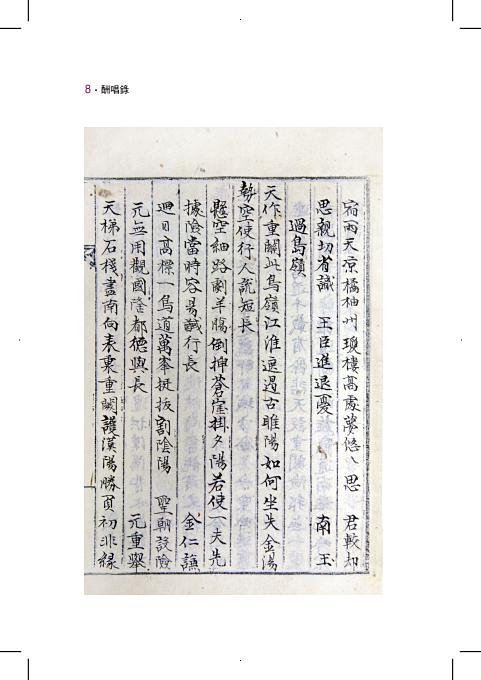 8 · 酬唱錄
宿雨天凉橘柚州瓊樓高處夢悠〻思 君較却
思親切省識 王臣進退憂 南 玉
過鳥嶺
天作重關此鳥嶺江淮遮遏古睢陽如何坐失金湯
勢空使行人說短長
懸空細路劇羊膓倒挿蒼崖掛夕陽若使一夫先
據險當時容易馘行長 金仁謙
廻日高標一鳥道萬峯挺拔割陰陽 聖朝設險
元無用觀國隆都德與長 元重擧
天梯石棧盡南向表裏重關護漢陽勝頁初非緣